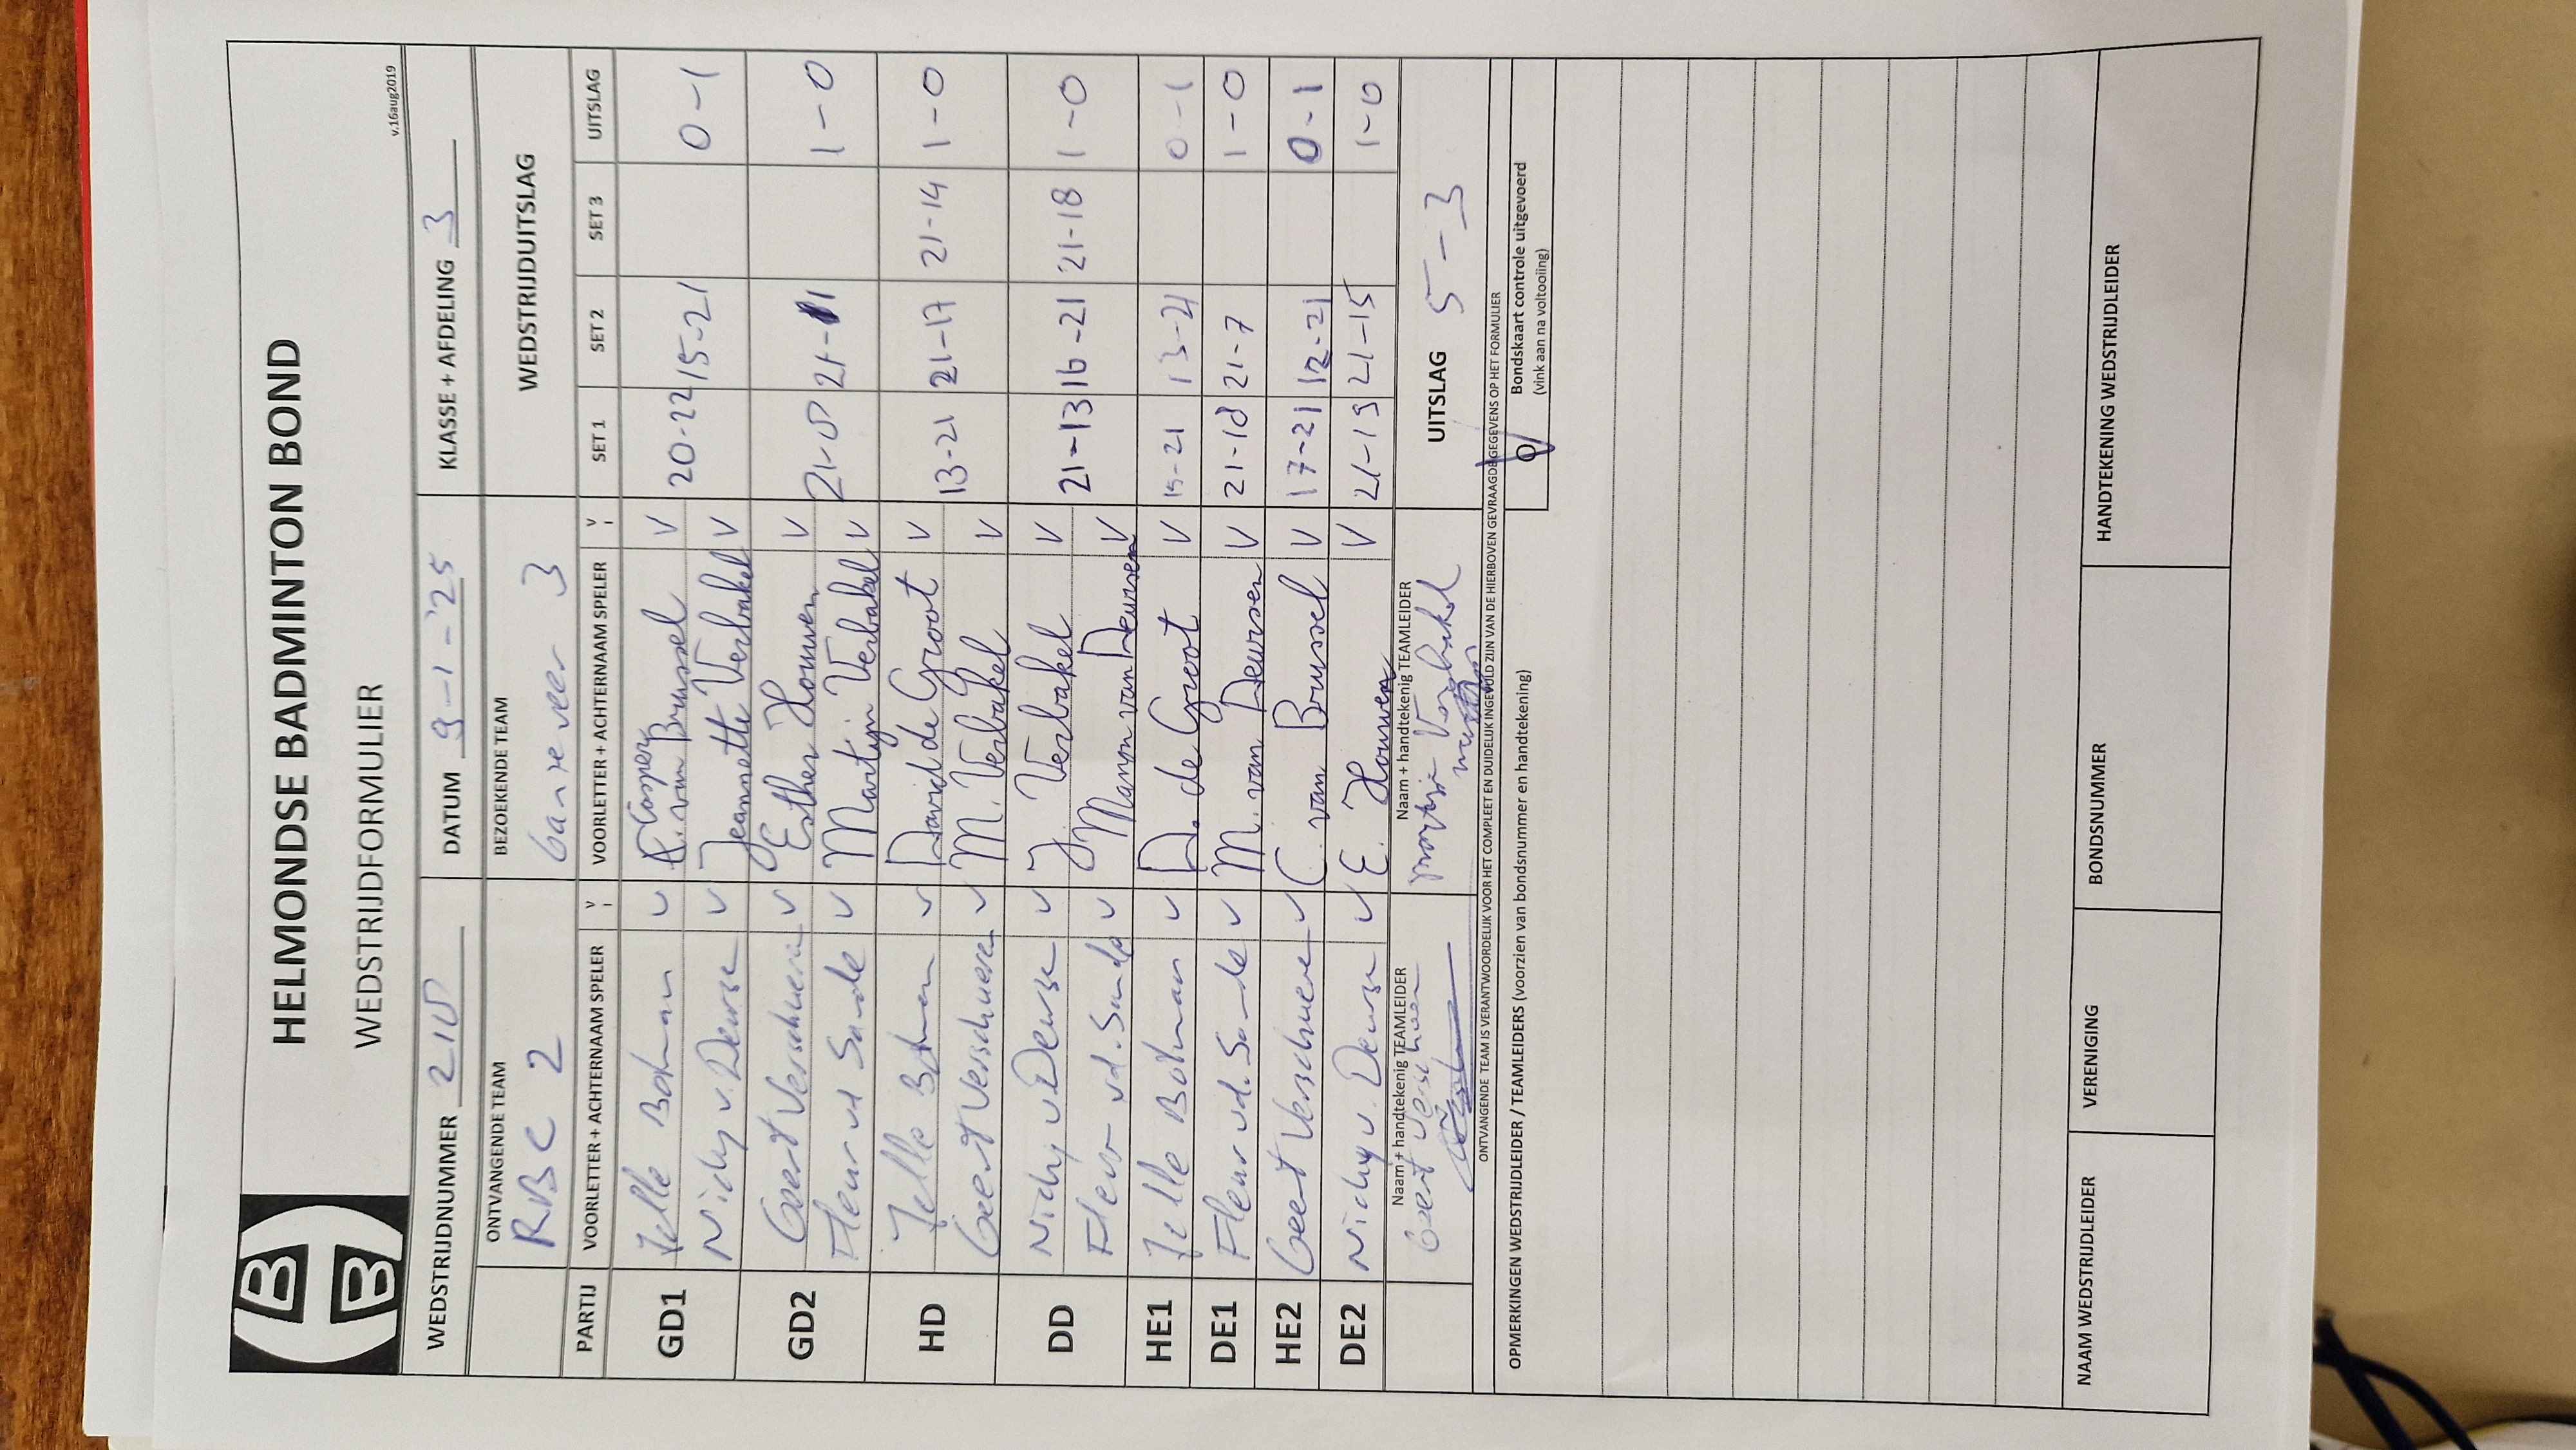 HELMONDSE BADMINTON BOND
WEDSTRIJDFORMULIER
v.16aug2019
WEDSTRIJDNUMMER 210 DATUM 9-1-'25 KLASSE + AFDELING 3
ONTVANGENDE TEAM BEZOEKENDE TEAM WEDSTRIJDUITSLAG
RBC 2 Ganzeveer 3
PARTIJ VOORLETTER + ACHTERNAAM SPELER V VOORLETTER + ACHTERNAAM SPELER V SET 1 SET 2 SET 3 UITSLAG
GD1 Jelle Botman V Casper van Brussel V 20-22 15-21 0-1
Nichy v. Deurse V Jeannette Verbakel V
GD2 Geert Verschueren V Esther Houwen V 21-8 21-11 1-0
Fleur vd Sande V Martijn Verbakel V
HD Jelle Botman V David de Groot V 13-21 21-17 21-14 1-0
Geert Verschueren V M. Verbakel V
DD Nichy v Deurse V J. Verbakel V 21-13 16-21 21-18 1-0
Fleur vd. Sande V Manon van Deursen V
HE1 Jelle Botman V D. de Groot V 15-21 13-21 0-1
DE1 Fleur vd. Sande V M. van Deursen V 21-18 21-7 1-0
HE2 Geert Verschueren V C. van Brussel V 17-21 12-21 0-1
DE2 Nichy v. Deurse V E. Houwen V 21-13 21-15 1-0
Naam + handtekenig TEAMLEIDER Naam + handtekenig TEAMLEIDER UITSLAG 5-3
Geert Verschueren Martijn Verbakel
ONTVANGENDE TEAM IS VERANTWOORDELIJK VOOR HET COMPLEET EN DUIDELIJK INGEVULD ZIJN VAN DE HIERBOVEN GEVRAAGDE GEGEVENS OP HET FORMULIER
OPMERKINGEN WEDSTRIJDLEIDER / TEAMLEIDERS (voorzien van bondsnummer en handtekening)
Bondskaart controle uitgevoerd
(vink aan na voltooiing)
NAAM WEDSTRIJDLEIDER VERENIGING BONDSNUMMER HANDTEKENING WEDSTRIJDLEIDER